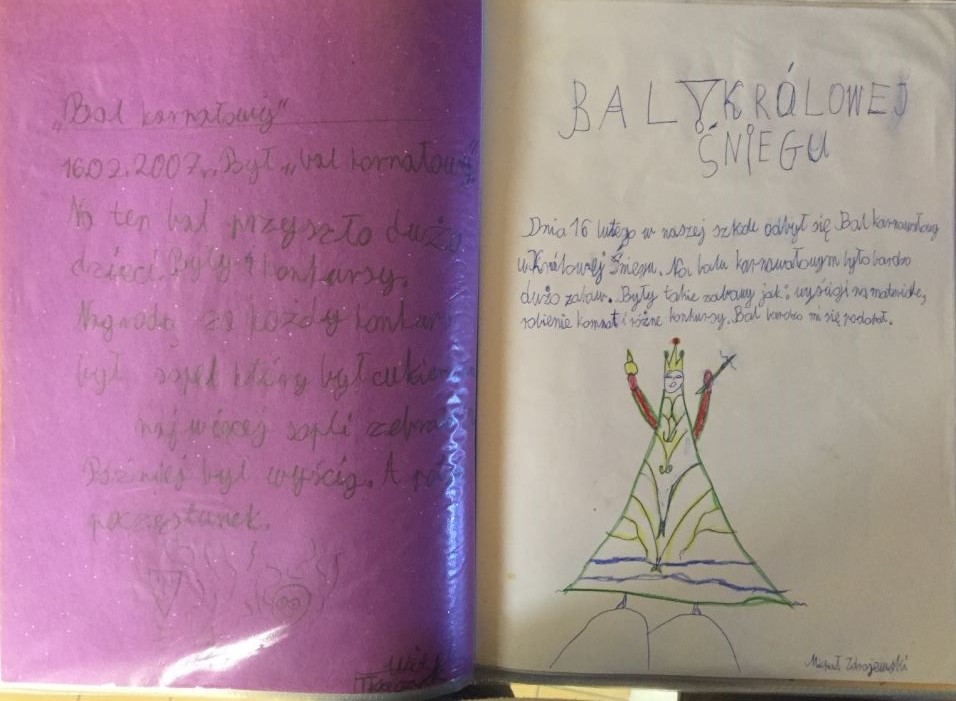 „Bal karnałowy"
16.02.2007r. Był „bal karnałowy"
Na ten bal przyszło dużo
dzieci. Były i konkursy.
Nagrodą za każdy konkurs
był sopel który był cukier
najwięcej sopli
Pózniej był wyścig. A
poczęstunek.
BAL U KRÓLOWEJ
ŚNIEGU
Dnia 16 lutego w naszej szkole odbył się Bal karnawałowy
u Królowej Śniegu. Na balu karnawałowym było bardzo
dużo zabaw. Były takie zabawy jak: wyścigi na materiale,
robienie komnat i różne konkursy. Bal bardzo mi się podobał.
Michał Zdrojewski